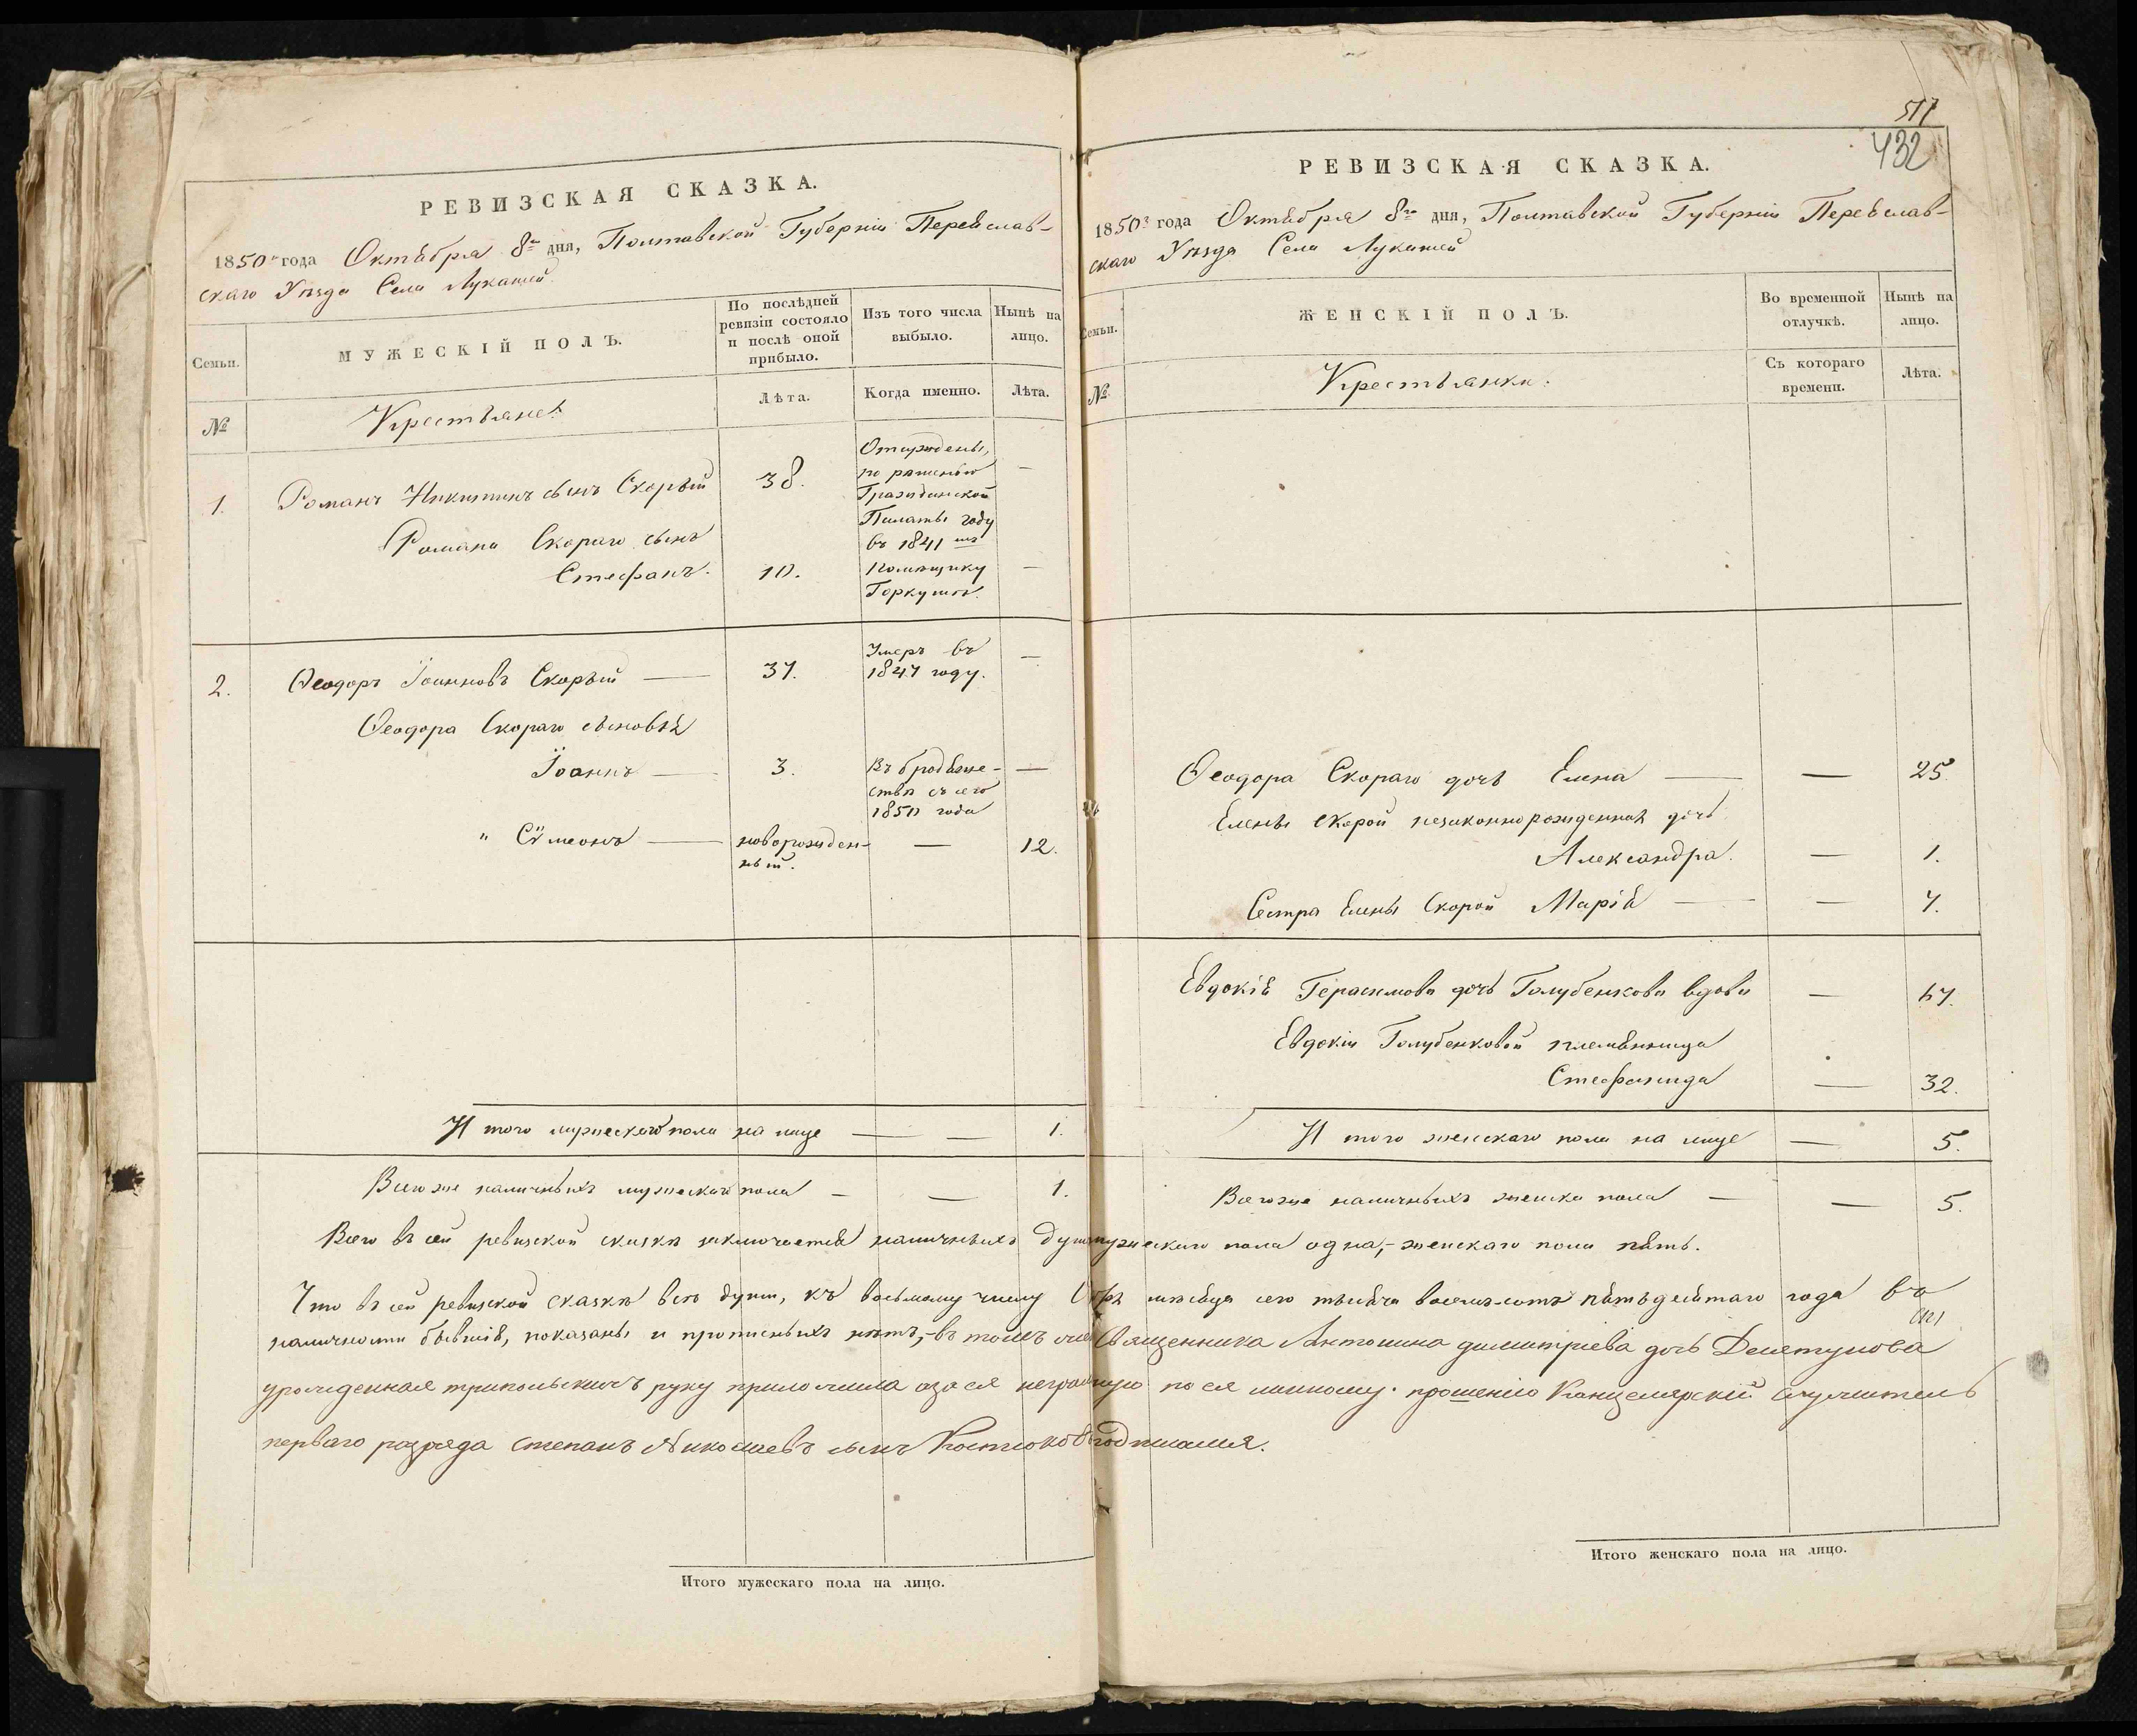 РЕВИЗСКАЯ СКАЗКА.
1850го года Октября 8го дня, Полтавской Губерніи Переяслав-
скаго Уѣзда Села Лукашей
Семьи.
МУЖЕСКІЙ ПОЛЪ.
По послѣдней
ревизіи состояло
и послѣ оной
прибыло.
Изъ того числа
выбыло.
Нынѣ на
лицо.
№
Крестьяне:
Лѣта.
Когда именно.
Лѣта.
1. Романъ Никитинъ сынъ Скорый 38. —
Отсуждены,
по рѣшенію
Гражданской
Палаты
въ 1841мъ году
Помѣщику
Горкушѣ.
Романа Скораго сынъ
Стефанъ. 10. —
2. Ѳеодоръ Іоанновъ Скорый — 37. —
Умеръ въ
1847 году.
Ѳеодора Скораго сыновья
Іоаннъ — 3. —
Въ бродяже-
ствѣ съ сего
1850 года
" Сѵмеонъ — новорожден- — 12.
ный.
И того мужескаго пола на лице — — 1.
Всего же наличныхъ мужескаго пола — — 1.
Итого мужескаго пола на лицо.
517
432
РЕВИЗСКАЯ СКАЗКА.
1850го года Октября 8го дня, Полтавской Губерніи Переяслав-
скаго Уѣзда Села Лукашей
Семьи.
ЖЕНСКІЙ ПОЛЪ.
Во временной
отлучкѣ.
Нынѣ на
лицо.
№
Крестьянки:
Съ котораго
времени.
Лѣта.
Ѳеодора Скораго дочь Елена — — 25.
Елены Скорой незаконнорожденная дочь
Александра. — 1.
Сестра Елены Скорой Марія — — 7.
Евдокія Герасимова дочь Голубенкова вдова — 67.
Евдокіи Голубенковой племянница
Стефанида — 32.
И того женскаго пола на лице — 5.
Всего же наличныхъ женска пола — — 5.
Всего въ сей ревизской сказкѣ заключается наличныхъ душъ мужескаго пола одна,- женскаго пола пять.
Что въ сей ревизской сказкѣ всѣ души, къ восьмому числу мѣсяца сего тысяча восемьсотъ пятьдесятаго года въ
наличности бывшія, показаны и прописныхъ нѣтъ,- въ томъ Священника Антонина Димитріева дочь
урожденная руку приложила а за ея неграмотную по ея личному прошенію Канцелярскій служитель
перваго разряда Степанъ Николаевъ сынъ подписался.
Итого женскаго пола на лицо.